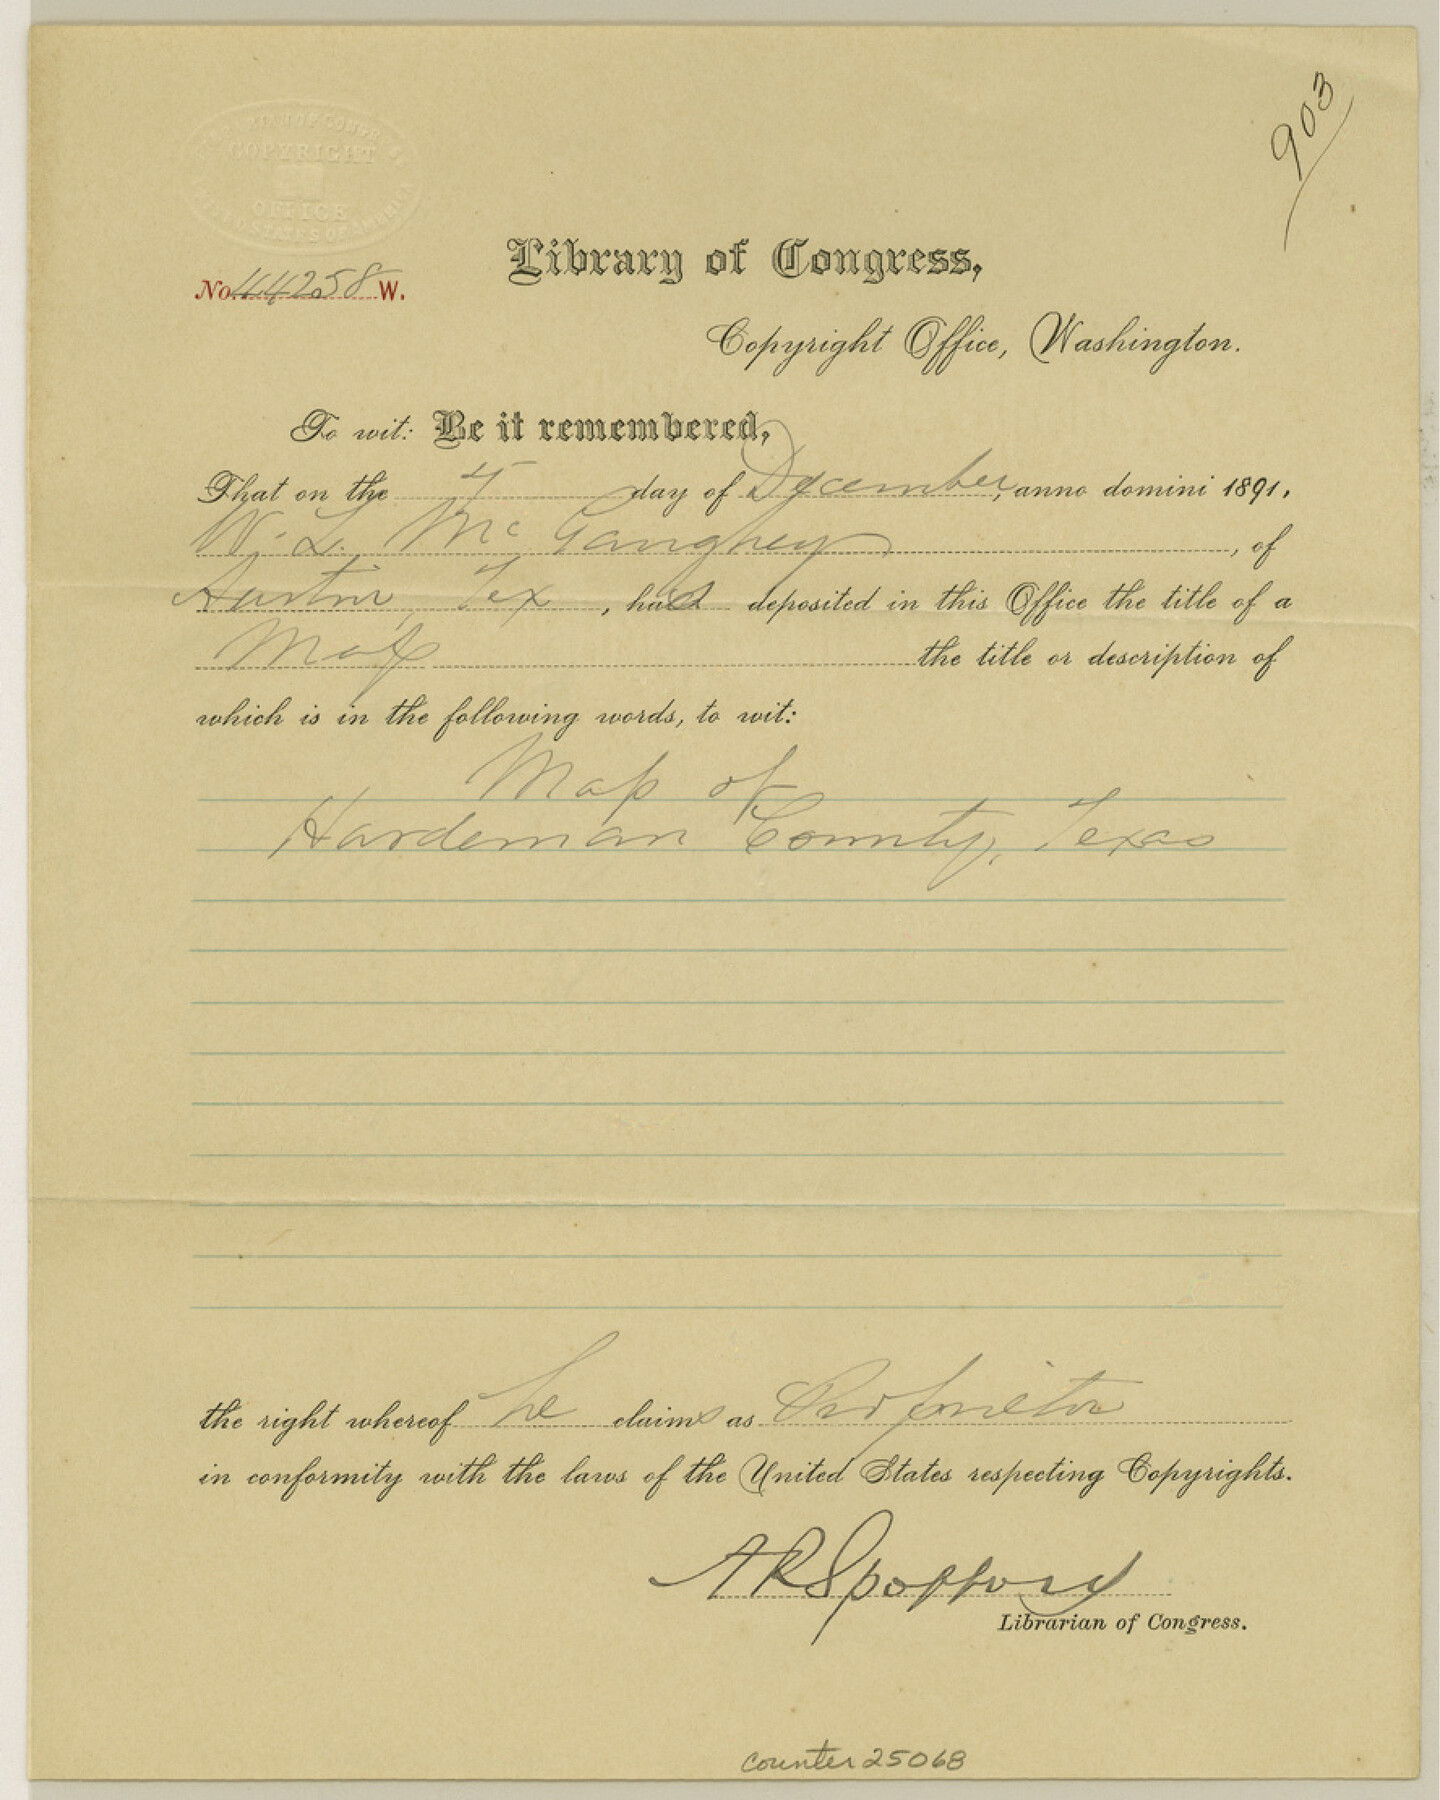 903
COPYRIGHT
OFFICE
Library of Congress,
No. 44258 W.
Copyright Office, Washington.
To wit: Be it remembered,
That on the 4 day of December, anno domini 1891.
W. L. McGaughey, of
Austin, Tex, has deposited in this Office the title of a
Map the title or description of
which is in the following words, to wit:
Map of
Hardeman County, Texas
the right whereof he claims as Proprietor
in conformity with the laws of the United States respecting Copyrights.
A R Spofford
Librarian of Congress.
counter 25068